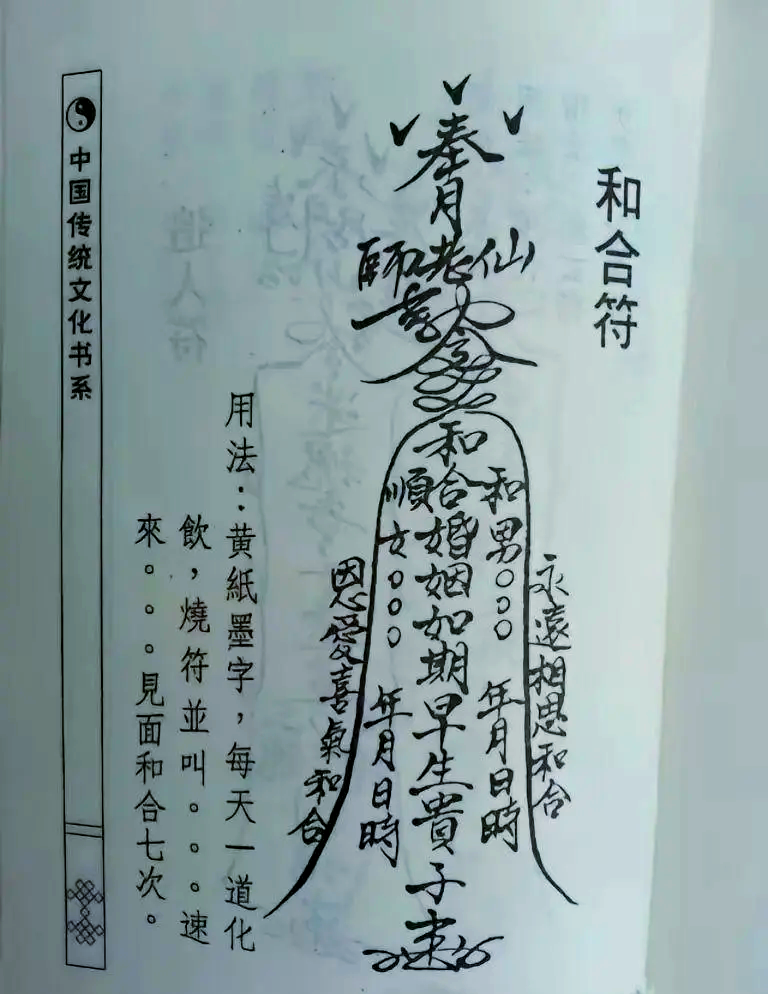 和合符
奉月
師老仙
和合婚姻如期早生貴子速
和男○○○ 年月日時
順女○○○ 年月日時
永遠相思和合
恩愛喜氣和合
用法：黃紙墨字，每天一道化
飲，燒符並叫。。。速
來。。。見面和合七次。
中国传统文化书系